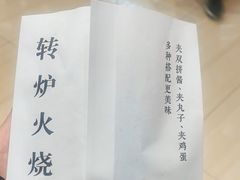 转炉火烧
夹双拼酱、夹丸子、夹鸡蛋
多种搭配更美味